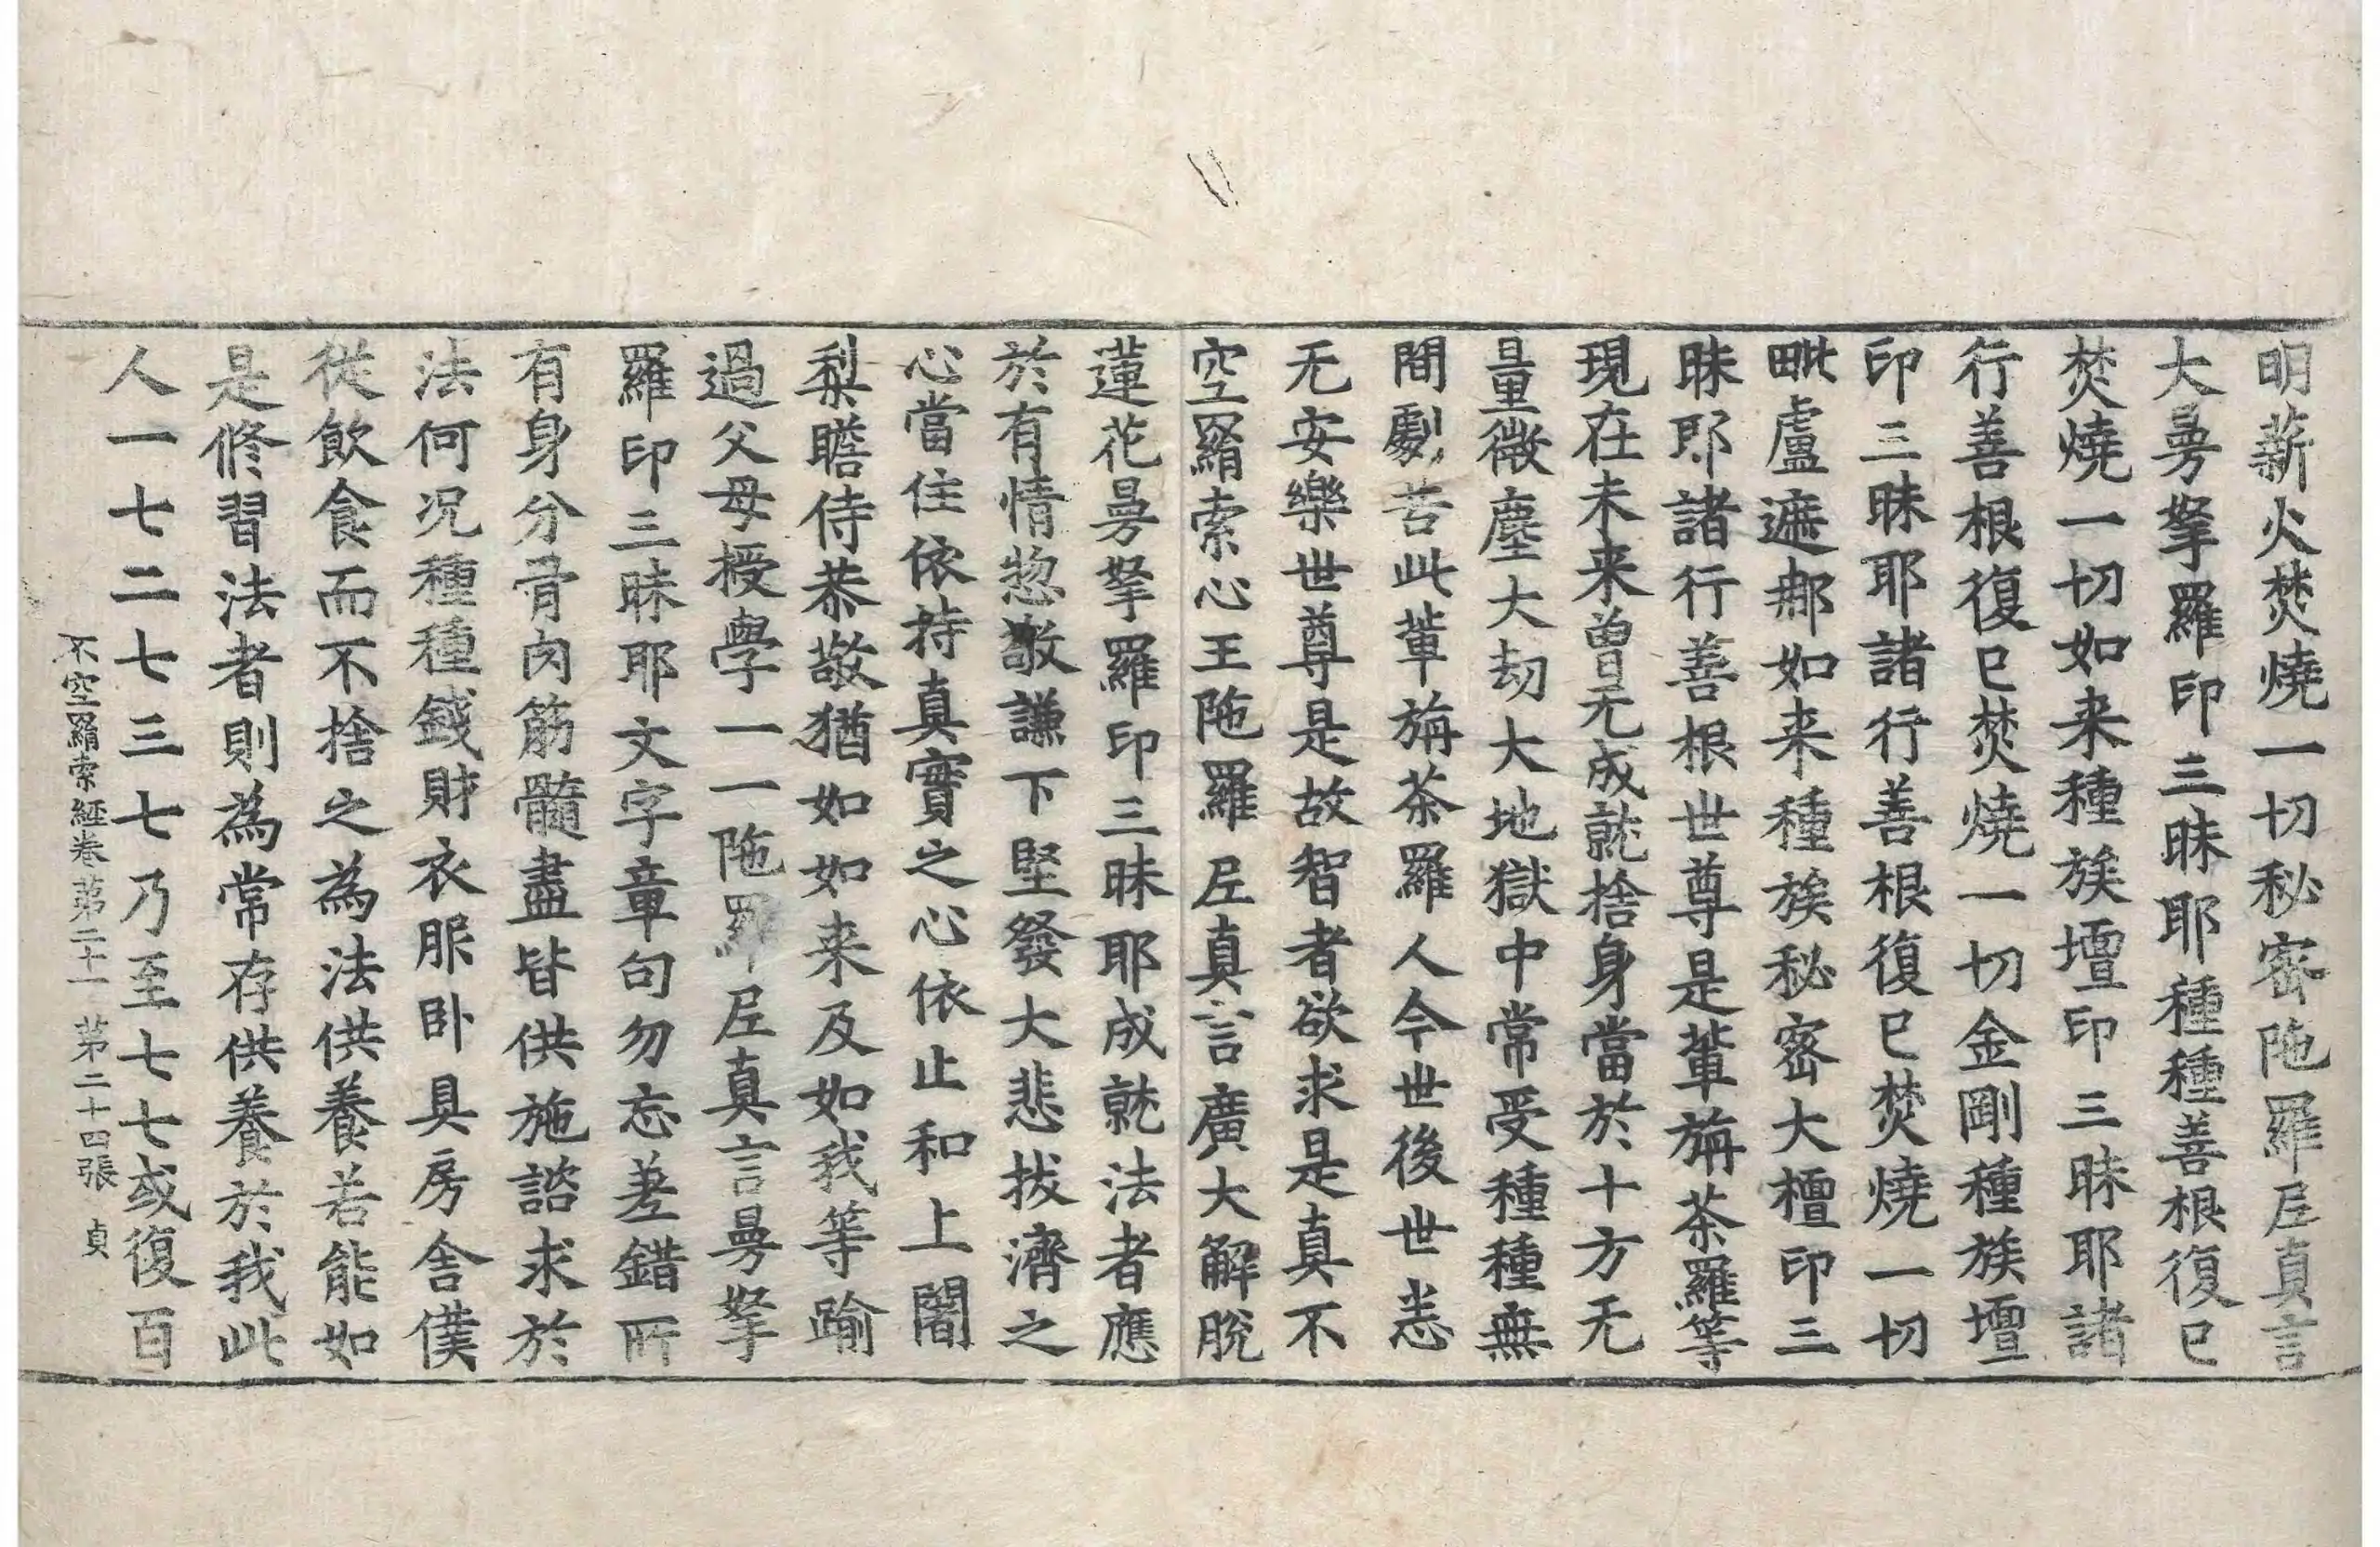 明薪火焚燒一切秘密陁羅尼真言
大曼拏羅印三昧耶種種善根復已
焚燒一切如来種族壇印三昧耶諸
行善根復已焚燒一切金剛種族壇
印三昧耶諸行善根復已焚燒一切
毗盧遮那如来種族秘密大檀印三
昧耶諸行善根世尊是輩旃茶羅等
現在未来曾无成就捨身當於十方无
量微塵大劫大地獄中常受種種無
間劇苦此輩旃茶羅人今世後世恙
无安樂世尊是故智者欲求是真不
空羂索心王陁羅尼真言廣大解脫
蓮花曼拏羅印三昧耶成就法者應
於有情惣敬謙下堅發大悲拔濟之
心當住依持真實之心依止和上闍
梨瞻侍恭敬猶如如来及如我等踰
過父母授學一一陁羅尼真言曼拏
羅印三昧耶文字章句勿忘差錯所
有身分骨肉筋髓盡皆供施諮求於
法何況種種錢財衣服卧具房舍僕
從飲食而不捨之為法供養若能如
是修習法者則為常存供養於我此
人一七二七三七乃至七七或復百
不空羂索經卷第二十一 第二十四張 貞